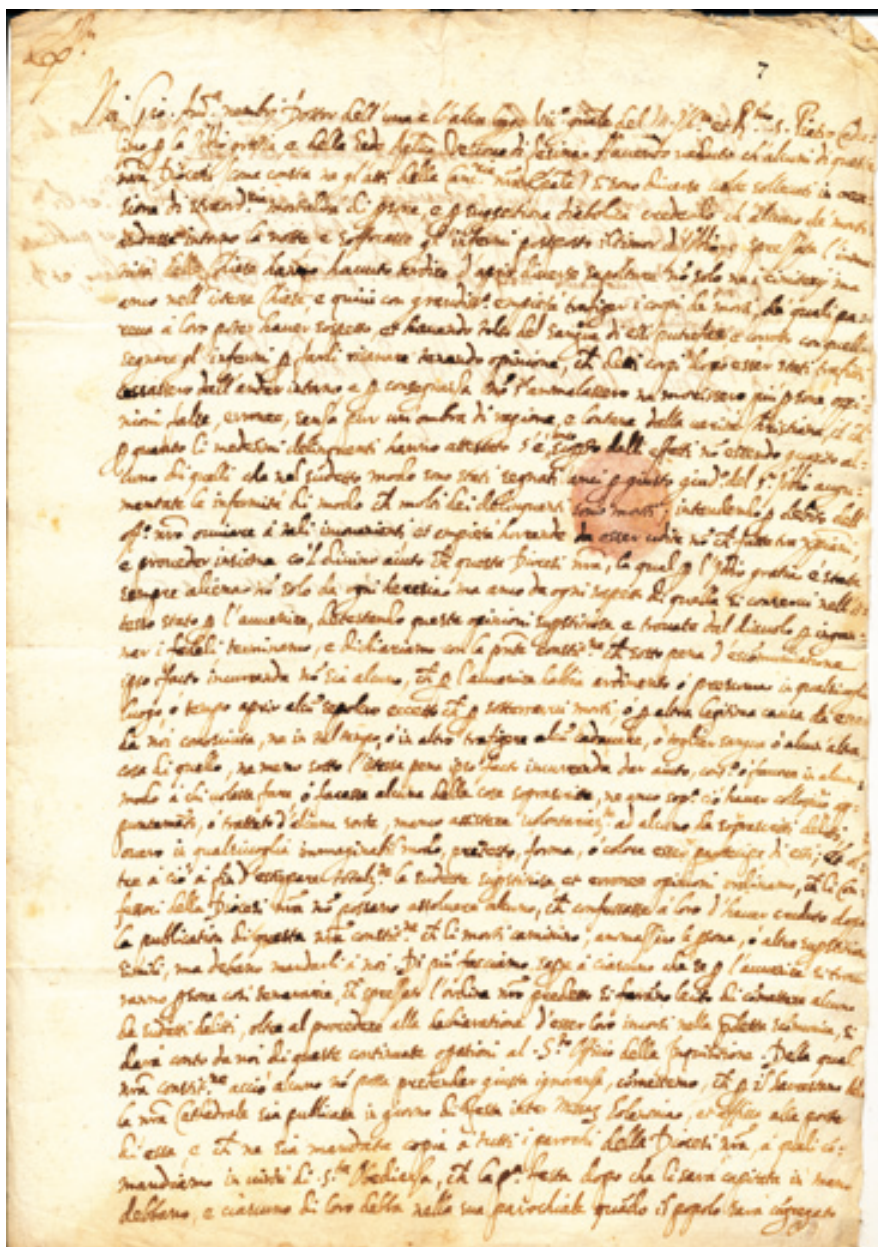 7
Noi Gio. And.ª nembri Dottor dell'una e l'altra legge Vic.º gñale del M. Ill.re et R.mo S. Pietro
lino p la Iddio gratia e della Sede Vescovo di Lesina. Havendo veduto ch'alcuni di questa
nrã Diocesi (come consta ne gl'atti della nrã) si sono diverse volte sollevati in occa-
sione di straord.ria mortalità di psone, e p suggestione diabolica credendo ch'alcuno de' morti
andasse intorno la notte e soffocasse gl'infermi posposto il timor d'Iddio, e sprezzata l'immu-
nità delle Chiese hanno havuto ardire d'aprir diverse sepolture nõ solo ne i cimiterij ma
anco nell'istesse Chiese, e quivi con grandiss.ª empietà trafiger i corpi de morti, de quali pa-
reva à loro poter haver sospetto, et havendo tolto del sangue di essi putrefatti e corrotti con quello
segnare gl'infermi p farli risanare tenendo opinione, ch detti corpi dopo esser stati trafitti
cessassero dall'andar intorno e p conseguenza nõ s'ammalassero ne morissero più psone, opi-
nioni false, erronee, senza pur un ombra di ragione, e lontane dalla verità Christiana, il ch
p quanto li medesimi delinquenti hanno attestato s'è anco scoperto dalli effetti nõ essendo guarito al-
cuno di quelli che nel sudetto modo sono stati segnati anci p giusto giud.º del S.r Iddio aug-
mentate le infermità di modo ch molti dei delinquenti sono morti; intendendo p debito dell'
off.º nrõ ovviare à tali inconvenienti et empietà horrende da esser udite nõ ch fatte tra xpiani,
e proveder insieme co'l divino aiuto ch questa Diocesi nrã, la qual p l'Iddio gratia è stata
sempre aliena nõ solo da ogni heresia, ma anco da ogni sospetto di quella si conservi nell'is-
tesso stato p l'avvenire, detestando queste opinioni supstitiose e trovate dal diavolo p ingan-
nar i fedeli terminamo, e dichiariamo con la pñte constit.ne ch sotto pena d'escommunicatione
ipso facto incurrenda nõ sia alcuno, ch p l'avvenire habbia ardimento ò presuma in qualsivoglia
luogo, ò tempo aprir alcũ sepolcro eccetto ch p sotterrarvi morti, ò p altra legitima causa da esser
da noi conosciuta, ne in tal tempo, ò in altro trafigere alcũ cadavere, ò toglier sangue ò alcun'altra
cosa di quello, ne meno sotto l'istessa pena ipso facto incurrenda dar aiuto, cons.º ò favore in alcun
modo à chi volesse fare ò facesse alcuna delle cose soprascritte, ne anco sop.ª ciò haver colloquio ap-
puntamẽti, ò trattati d'alcuna sorte, manco assistere volontariamte ad alcuno de soprascritti delitti
overo in qualsivoglia immaginabil modo, pretesto, forma, ò colore esser partecipe di essi, Et ol-
tre à ciò à fin d'estirpare totalmte la sudetta supstitiosa et erronea opinioni ordinamo, ch li Con-
fessori della Diocesi nrã nõ possano assolvere alcuno, ch confessasse à loro d'haver creduto dopo
la publication di questa nrã constit.ne ch li morti caminino, ammazzino le psone, ò altre supstitioni
simili, ma debano mandarli à noi. Di più facciamo sapere à ciascuno che se p l'avvenire si trove-
ranno psone così temerarie, ch sprezzato l'ordine nrõ predetto si faranno lecito di cõmettere alcuno
de sudetti delitti, oltre al procedere alla dechiaratione d'esser loro incorsi nella pdetta scõmunica, si
darà conto da noi di queste continuate opationi al S.to Officio della Inquisitione. Della qual
nrã constit.ne acciò alcuno nõ possa pretender giusta ignoranza, cõmettemo, ch p il
la nrã Cathedrale sia publicata in giorno di festa inter Missar Solennia, et affissa alle porte
di essa e ch ne sia mandata copia à tutti i parochi della Diocesi nrã, à quali cõ-
mandiamo in virtù di S.ta Obedienza, ch la pª festa dopo che li sarà capitata in mano
debbano, e ciascuno di loro debba nella sua parochiale quãdo il popolo sarà cõgregato